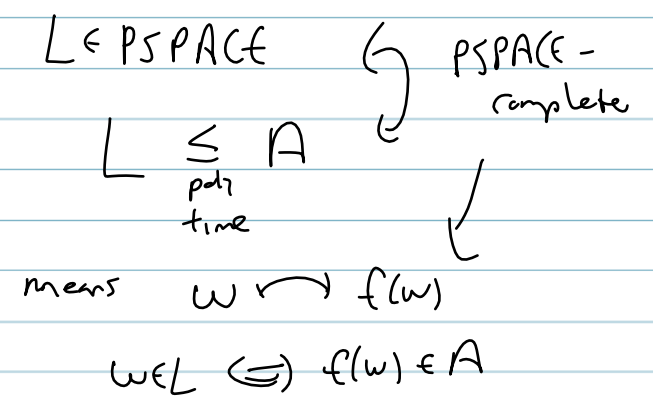 L ∈ PSPACE
PSPACE-
complete
L ≤ A
poly
time
means w ↦ f(w)
w∈L ⇔ f(w) ∈ A